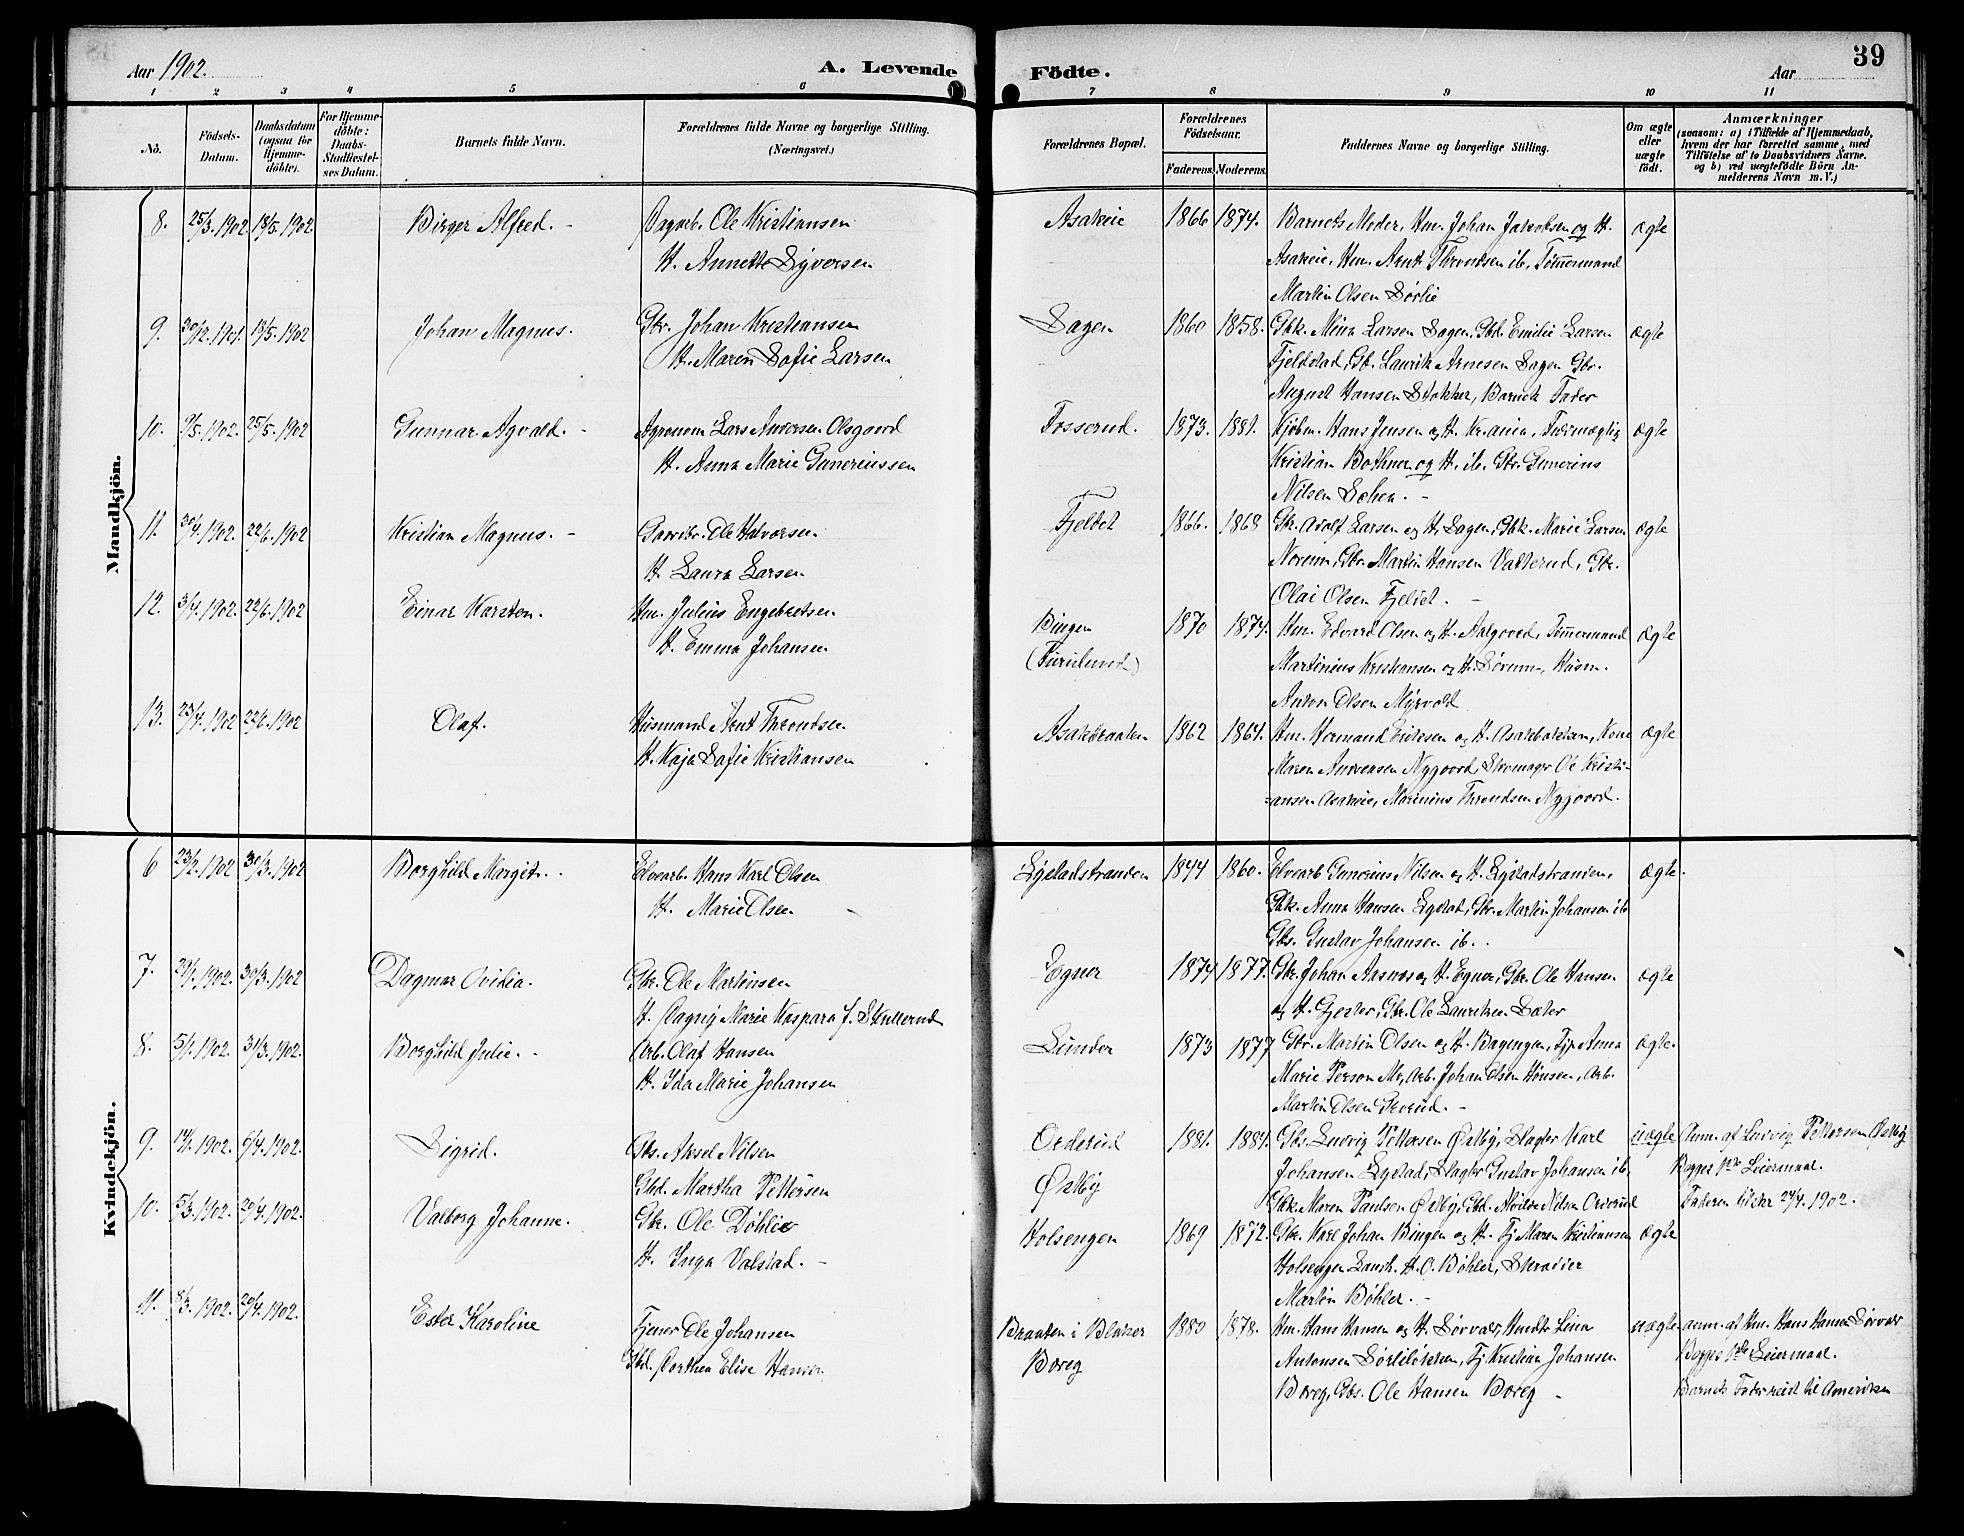 39
Aar 1902.
A. Levende Födte.
Aar
1 2 3 4 5 6 7 8 9 10 11
No.
Födsels-Datum.
Daabsdatum (ogsaa for Hjemmedöbte).
For Hjemmedöbte: Daabs-Stadfæstelses Datum.
Barnets fulde Navn.
Forældrenes fulde Navne og borgerlige Stilling. (Næringsvei.)
Forældrenes Bopæl.
Forældrenes Födselsaar.
Faderens. Moderens.
Faddernes Navne og borgerlige Stilling.
Om ægte eller uægte födt.
Anmærkninger
(saasom: a) i Tilfælde af Hjemmedaab, hvem der har forrettet samme, med Tilföielse af to Daabsvidners Navne, og b) ved uægtefödte Börn Anmelderens Navn m. V.)
Mandkjön.
8. 25/3. 1902 18/5. 1902. Birger Alfred. - Dagarb. Ole Kristiansen Asakeie 1866 1874. Barnets Moder, Hm. Johan Jakobsen og H. ægte
H. Annette Syversen Asakeie, Hm. Arnt Throndsen ib, Tömmermand
Martin Olsen Sörlie
9. 30/12. 1901. 18/5. 1902 Johan Magnus. Gbr. Johan Kristiansen Sagen 1860 1858. Gbk. Mina Larsen Sagen, Gbd. Emilie Larsen ægte
H. Maren Sofie Larsen Fjeldstad, Gb. Laurits Arnesen Sagen Gbr.
August Hansen Stokker, Barnets Fader
10. 9/5. 1902. 25/5. 1902 Gunnar Agvald. - Agronom Lars Andersen Olsgaard Fosserud. 1873. 1881. Kjöbm. Hans Jensen og H. Kr.ania, ægte
H. Anna Marie Gunerius­sen Kristian Bothner og H. ib. Gbr. Gunerius
Nilsen
11. 30/4. 1902. 22/6. 1902 Kristian Magnus. - Gaardbr. Ole Halvorsen Fjeldet 1866. 1868 Gbr. Adolf Larsen og H. Sagen, Gbk. Marie Larsen ægte
H. Laura Larsen Norum, Gbr. Martin Hansen Vatterud, Gbr.
Olai Olsen Fjeldet. -
12. 3/4. 1902. 22/6. 1902 Einar Karsten. Hm. Julius Engebretsen Bingen 1870 1874. Hm. Edvard Olsen og H. Aalgaard, Tömmermand ægte
H. Emma Johansen (Furulund) Martinius Kristiansen og H. Sörum, Husm.
Anton Olsen Myrvold
13. 23/4. 1902 22/6. 1902 Olaf. Husmand Arnt Throndsen Asakbraaten 1862 1864. Hm. Herman Eriksen og H. Asakbakken, Kone ægte
H. Kaja Sofie Kristiansen Maren Andreasen Nygaard, Skomager Ole Kristi-
-ansen Asakeie, Marinius Throndsen Nygaard.
Kvindekjön.
6 23/2. 1902 30/3. 1902 Borghild Margit. - Elvearb. Hans Karl Olsen Lystadstranden 1844 1860. Elvearb Gunerius Nilsen og H. Lystadstranden, ægte.
H. Marie Olsen - Gbk. Anna Hansen Lystad, Gbr. Martin Johansen ib
Gbs. Gustav Johansen ib..
7. 29/1. 1902. 30/3. 1902 Dagmar Ovidia. Gbr. Ole Martinsen Egner 1874 1877. Gbr. Johan Aasnæs og H. Egner, Gbr. Ole Hansen ægte
H. Dagny Marie Kaspara f. Skullerud og H. Gjester, Gbr. Ole Lauritsen Sæter
8. 5/1. 1902. 31/3. 1902. Borghild Julie. - Arb. Olaf Hansen Lunder 1873 1877 Gbr. Martin Olsen og H. Bagengen, Tjp Anna ægte.
H. Ida Marie Johansen Marie Person Mo, Arb. Johan Olsen Hönsen, Arb.
Martin Olsen -
9. 14/1. 1902. 6/4. 1902. Sigrid. Gbs. Aksel Nilsen Orderud 1881. 1884. Gbs. Ludvig Pettersen Østby, Slagter Karl uægte Anm. af Ludvig Pettersen Østby
Gbd. Martha Pettersen Østby Johansen Lystad, Slagter Gustav Johansen ib. Begges 1ste Leiermaal.
Gbk. Maren Paulsen Østby, Gbd. Alvilde Nilsen Orderud Faderen tilstar 24/4. 1902.
10. 5/3. 1902. 20/4. 1902. Valborg Johanne. Gbr. Ole Döhler Holsengen 1869 1872. Gbr. Karl Johan Bingen og H. Tj. Maren Kristiansen ægte
H. Inga Valstad. - Holsengen H. O. Böhler, Skrædder
Martin Böhler. -
11. 8/3. 1902. 20/4. 1902. Ester Karoline Tjener Ole Johansen Braaten i Blaker 1880 1878. Hm. Hans Hansen og H. Sörvald, Hmdtr Lina uægte anm. af Hm. Hans Hansen Sörvald
Gbd. Dorthea Elise Hansen Boreg Antonsen Sörlilökken, Tj Kristian Johansen Begges 1ste Leiermaal.
Boreg, Gbs. Ole Hansen Boreg - Barnets Fader reist til Amerika